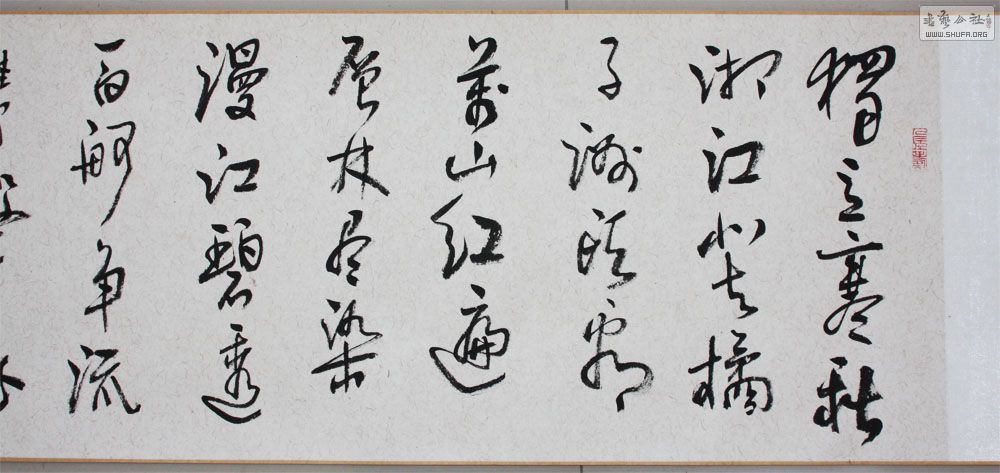 獨立寒秋
湘江北去橘
子洲頭看
萬山紅遍
层林尽染
漫江碧透
百舸争流
書藝公社
WWW.SHUFA.ORG